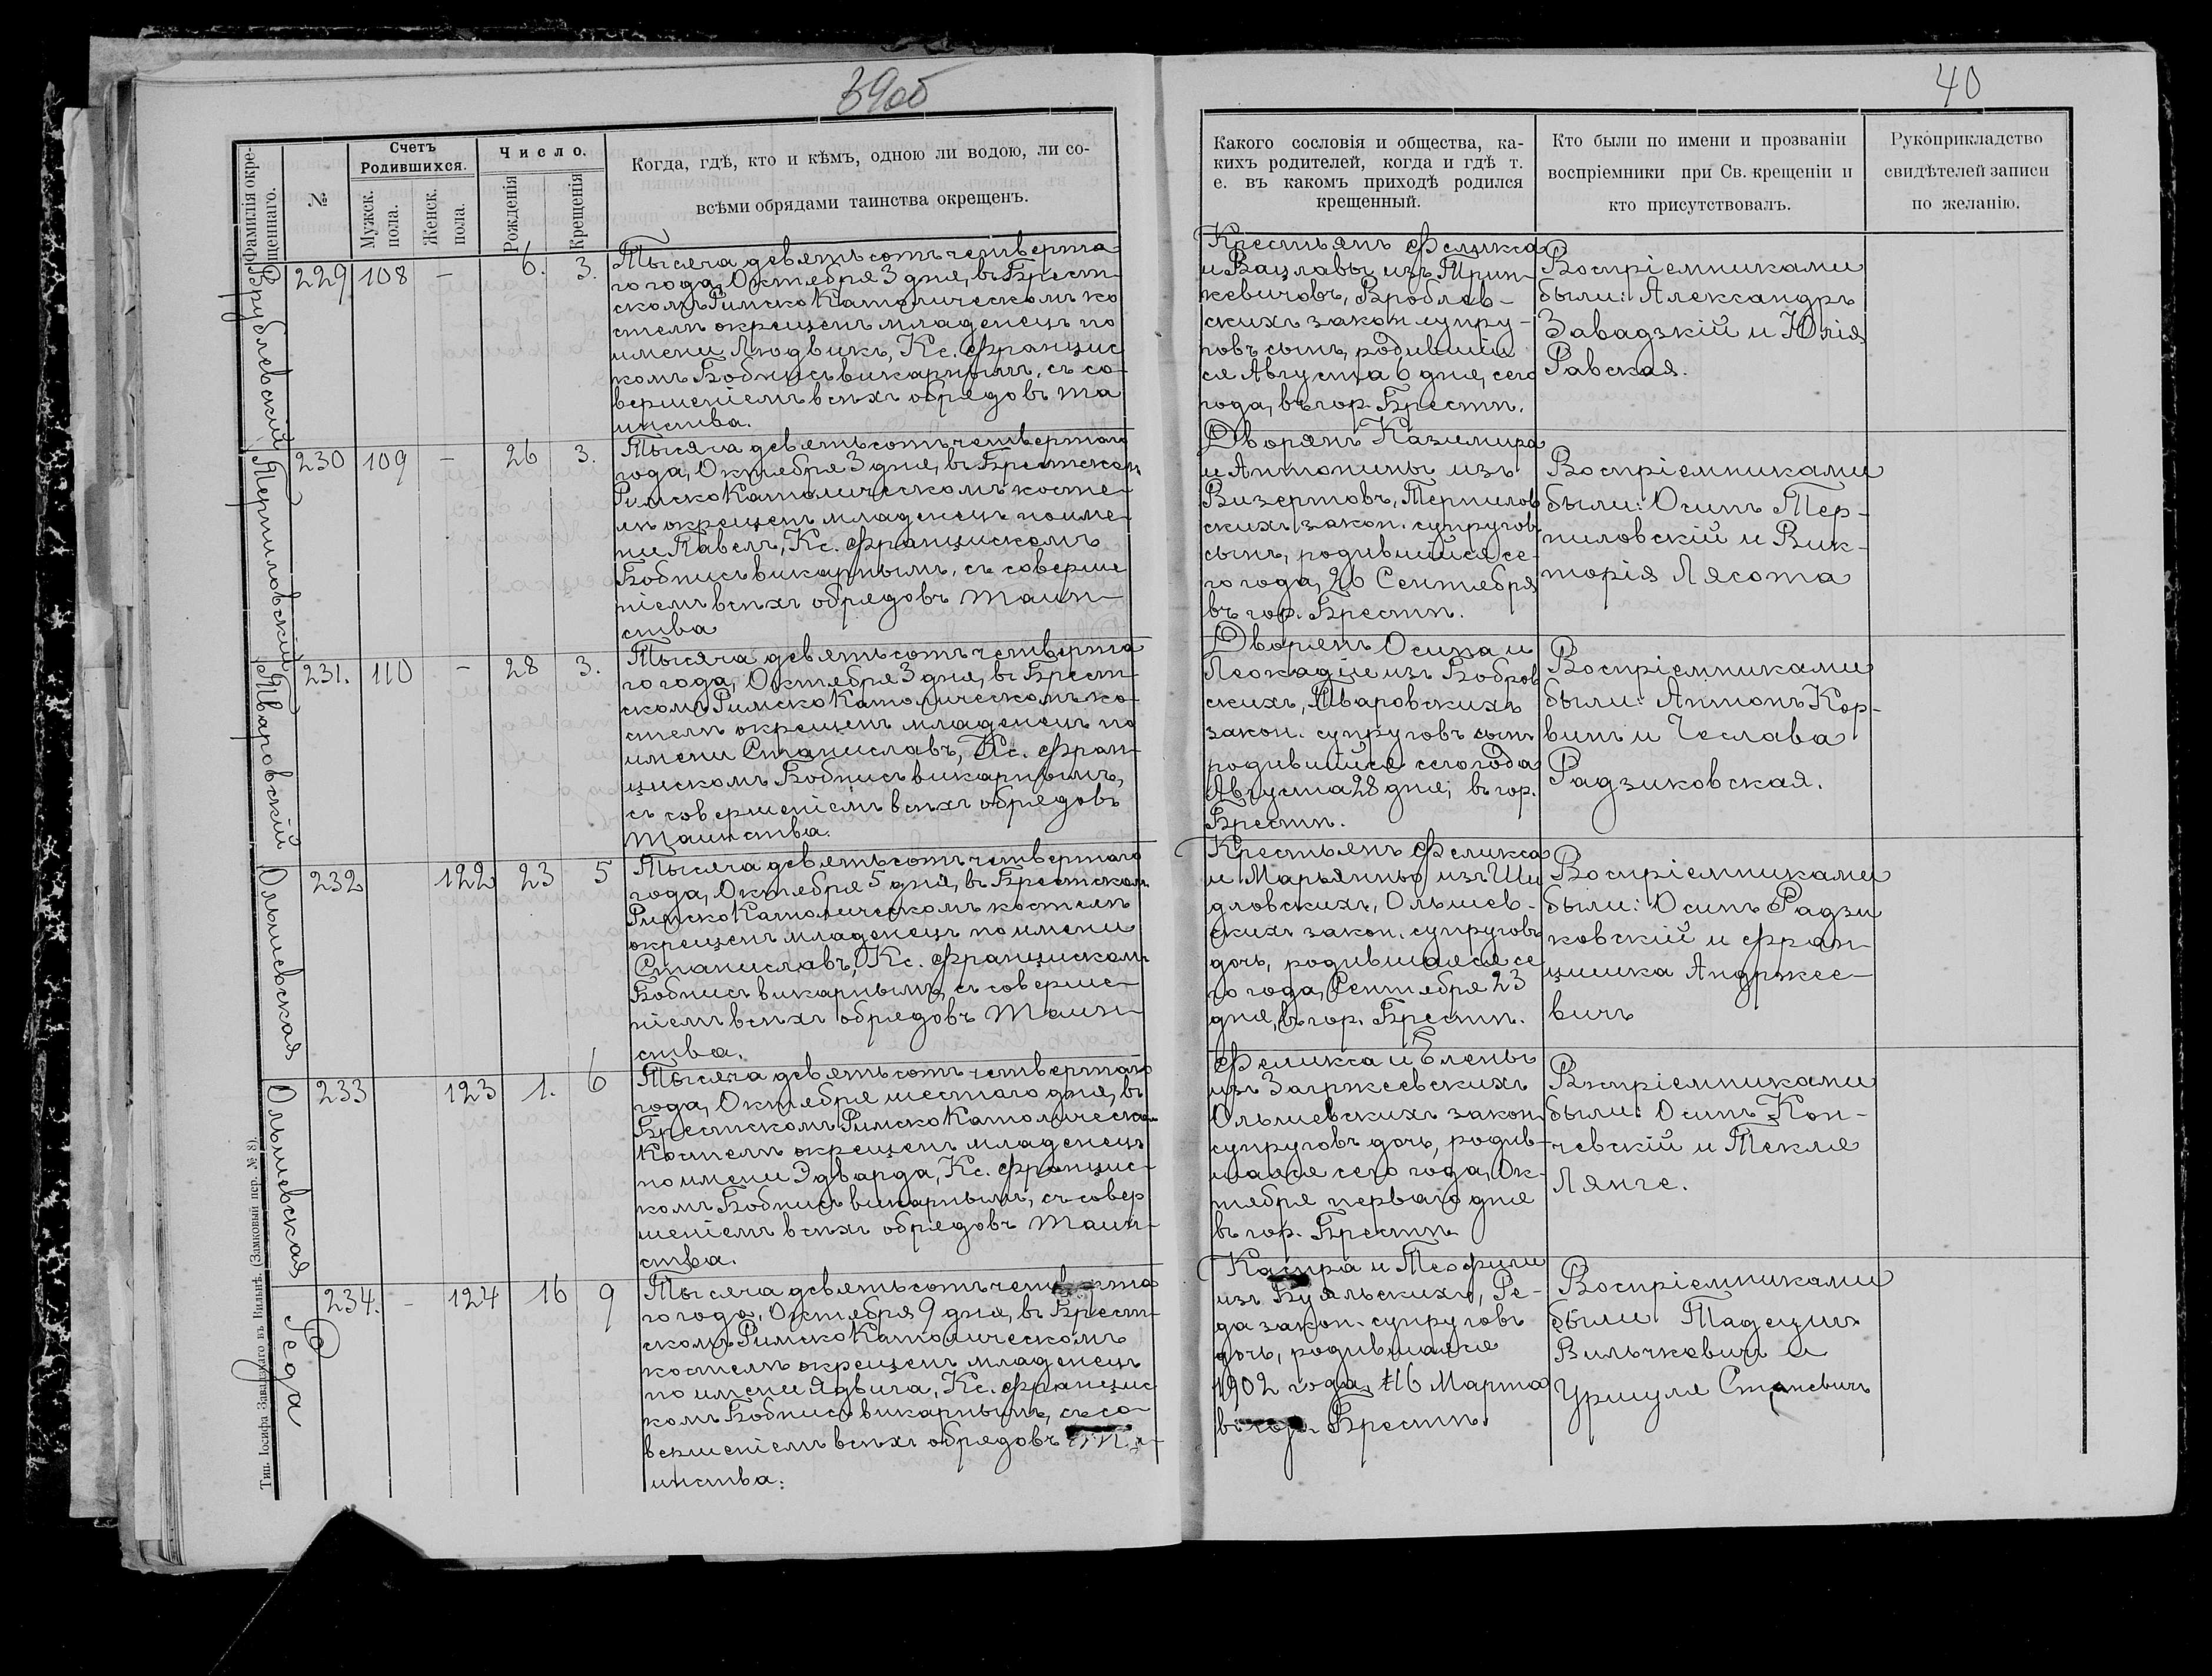 39об
40
Фамилія окрещеннаго.
№
Счетъ Родившихся.
Мужск. пола.
Женск. пола.
Число.
Рожденія
Крещенія
Когда, гдѣ, кто и кѣмъ, одною ли водою, ли со-
всѣми обрядами таинства окрещенъ.
Какого сословія и общества, ка-
кихъ родителей, когда и гдѣ т.
е. въ какомъ приходѣ родился
крещенный.
Кто были по имени и прозваніи
воспріемники при Св. крещеніи и
кто присутствовалъ.
Рукоприкладство
свидѣтелей записи
по желанію.
Врублевскій
229 108 – 6. 3.
Тысяча девятьсотъ четверта
го года, Октября 3 дня, въ Брест-
скомъ Римско Католическомъ ко
стелѣ окрещенъ младенецъ по
имени Людвикъ, Кс. Францис
комъ Бобнисъ викарнымъ, съ со-
вершеніемъ всѣхъ обрядовъ та
инства.
Крестьянъ Феликса
и Вацлавы изъ Трин-
кевичовъ, Вроблев-
скихъ закон супру-
говъ сынъ, родивший
ся Августа 6 дня, сего
года, въ гор. Брестѣ.
Воспріемниками
были: Александръ
Завадзкій и Юлія
Равская.
Терпиловскій
230 109 – 26 3.
Тысяча девятьсотъ четвертаго
года, Октября 3 дня, въ Брестском
Римско Католическомъ косте-
лѣ окрещенъ младенецъ по име-
ни Павелъ, Кс. Францискомъ
Бобнисъ викарнымъ, съ соверше
ніемъ всѣхъ обрядовъ таин-
ства
Дворянъ Казимира
и Антонины изъ
Визертовъ, Терпилов
скихъ закон. супруговъ
сынъ, родившійся се-
го года, 26 Сентября
въ гор. Брестѣ.
Воспріемниками
были: Осипъ Тер-
пиловскій и Вик-
торія Лясота
Яваровскій
231. 110 – 28 3.
Тысяча девятьсотъ четверта
го года, Октября 3 дня, въ Брест-
скомъ Римско Католическомъ ко-
стелѣ окрещенъ младенецъ по
имени Станиславъ, Кс. Фран-
цискомъ Бобнисъ викарнымъ,
съ совершеніемъ всѣхъ обрядовъ
таинства.
Дворянъ Осипа и
Леокадіи изъ Бобров
скихъ, Яваровскихъ
закон. супруговъ сынъ
родившійся сего года
Августа 28 дня, въ гор.
Брестѣ.
Воспріемниками
были: Антонъ Кор-
винъ и Чеслава
Радзиковская.
Ольшевская
232 122 23 5
Тысяча девятьсотъ четвертаго
года, Октября 5 дня, въ Брестском
Римско Католическомъ костелѣ
окрещенъ младенецъ по имени
Станиславъ, Кс. Францискомъ
Бобнисъ викарнымъ, съ соверше-
ніемъ всѣхъ обрядовъ таин-
ства.
Крестьянъ Феликса
и Марьянны изъ Ши
дловскихъ, Ольшев-
скихъ закон. супруговъ
дочь, родившаяся се
го года, Сентября 23
дня, въ гор. Брестѣ.
Воспріемниками
были: Осипъ Радзи
ковскій и Фран-
цишка Андржее-
вичъ
Ольшевская
233 123 1. 6
Тысяча девятьсотъ четвертаго
года, Октября шестого дня, въ
Брестскомъ Римско Католическом
Костелѣ окрещенъ младенецъ
по имени Эдварда, Кс. Францис-
комъ Бобнисъ викарнымъ, съ совер
шеніемъ всѣхъ обрядовъ таин-
ства.
Феликса и Елены
изъ Загржеевскихъ
Ольшевскихъ закон
супруговъ дочь, родив-
шаяся сего года, Ок-
тября перваго дня
въ гор. Брестѣ
Воспріемниками
были: Осипъ Кон-
чевскій и Текля
Лянге.
Реда
234. – 124 16 9
Тысяча девятьсотъ четверта
го года, Октября 9 дня, въ Брест-
скомъ Римско Католическомъ
костелѣ окрещенъ младенецъ
по имени Ядвига, Кс. Францис
комъ Бобнисъ викарнымъ, съ со-
вершеніемъ всѣхъ обрядовъ та-
инства.
Каспра и Теофили
изъ Буяльскихъ, Ре-
да закон. супруговъ
дочь, родившаяся
1902 года, 16 Марта
въ гор. Брестѣ.
Воспріемниками
были Тадеушъ
Вильчкевичъ и
Уршуля Станевичъ
Тип. Іосифа Завадзкаго въ Вильнѣ. (Замковый пер. № 8).